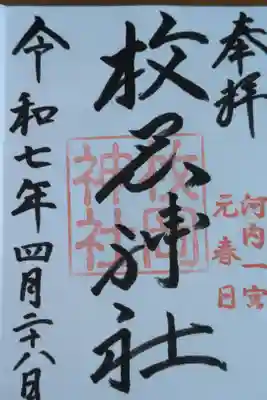 奉拝
河内一宮
元春日
枚岡神社
枚岡神社
令和七年四月二十八日